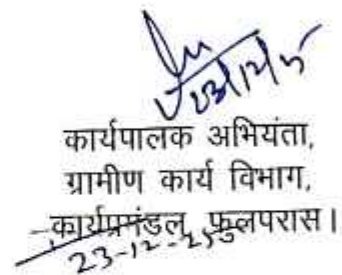 कार्यपालक अभियंता,
ग्रामीण कार्य विभाग,
कार्यप्रमंडल, फुलपरास।
23-12-25